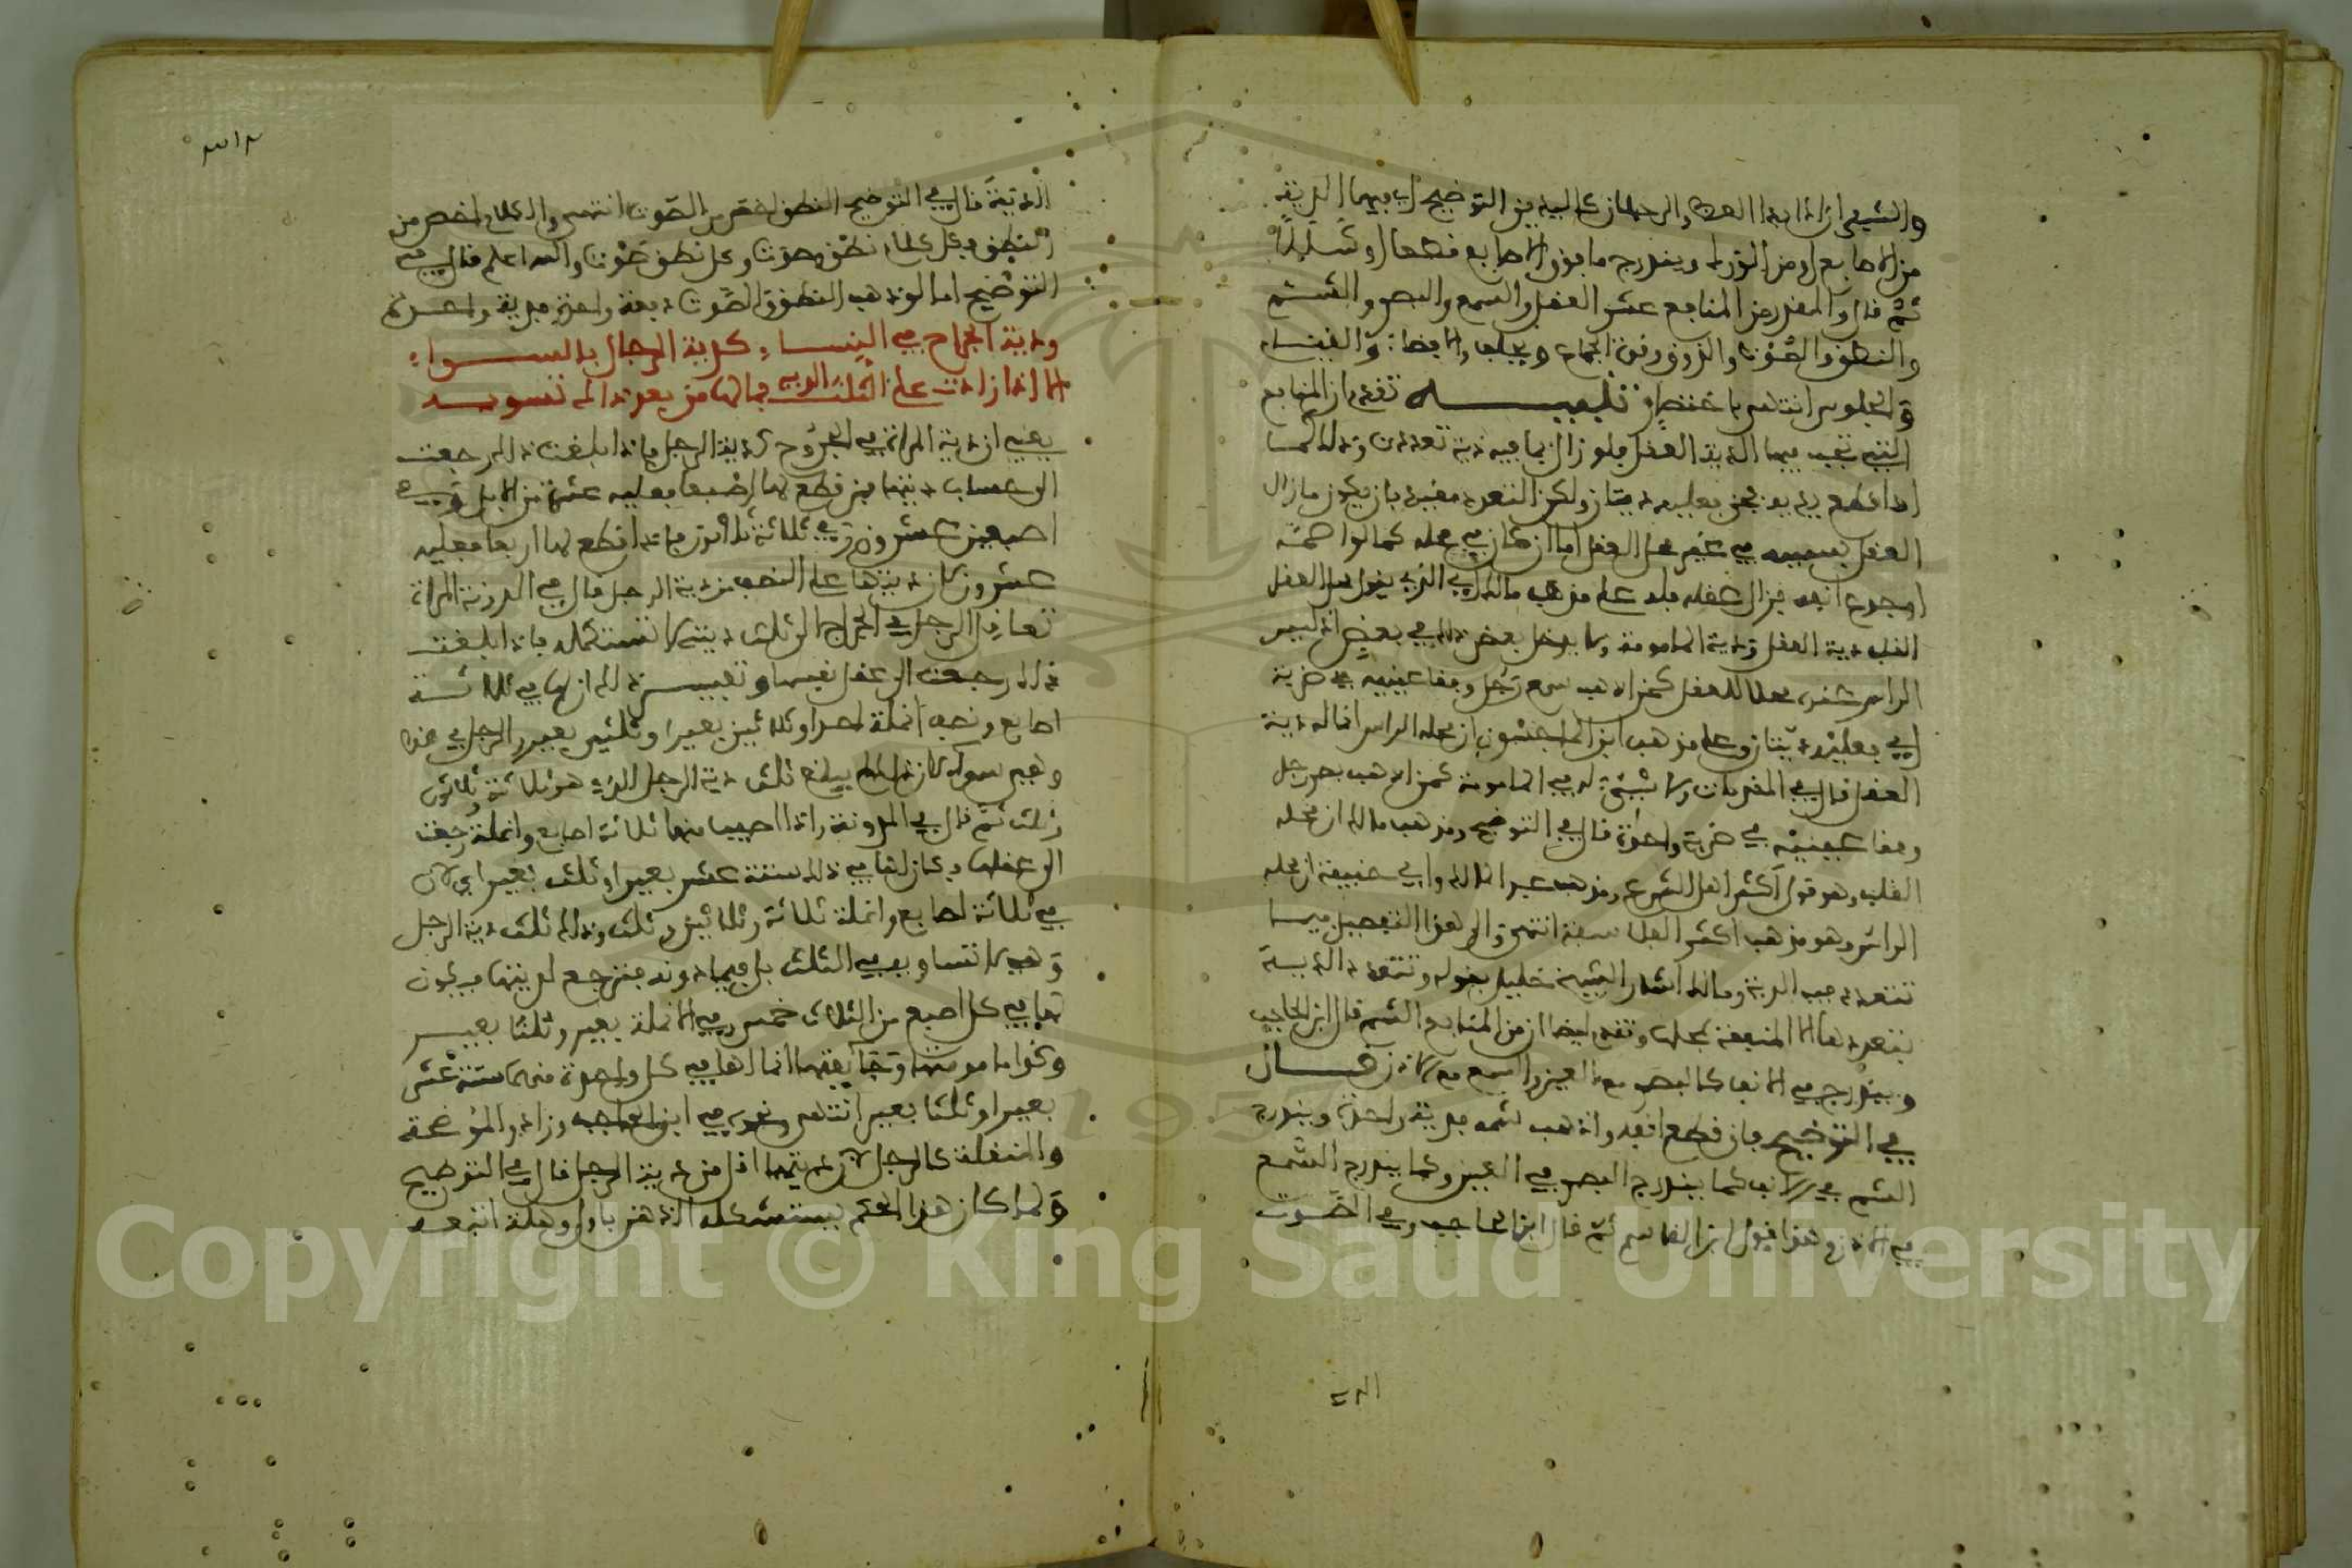 والشفران اذا بدا العظم والرجلان كاليدين التوضيح اي فيهما الدية
من الاصابع او من الورك ويندرج ما فوق الاصابع قطعا او شللا
ثم قال والمقدر من المنافع عشر العقل والسمع والبصر والشم
والنطق والصوت والذوق وقوة الجماع والافضاء والقيام
والجلوس انتهى باختصار تنبيه تقدم ان المنافع
التي تجب فيها الدية العقل فلو زال بما فيه دية تعددت وذلك كما
اذا قطع يديه فجن فعليه ديتان ولكن التعدد مقيد بان يكون ما زال
العقل بسببه في غير محل العقل اما ان كان في محله كما لو اصمه
او جدع انفه فزال عقله فله على مذهب مالك الذي يقول محل العقل
القلب دية العقل ودية المامومة ولا يدخل بعض ذلك في بعض اذ ليس
الراس عنده محلا للعقل كمن اذهب سمع رجل وفقا عينيه في ضربة
اي فعليه ديتان وعلى مذهب ابن الماجشون ان محله الراس انما له دية
العقل قال في المقدمات ولا شيء له في المامومة كمن اذهب بصر رجل
وفقا عينيه في ضربة واحدة قال في التوضيح ومذهب مالك ان محله
القلب وهو قول اكثر اهل الشرع ومذهب عبد الملك وابي حنيفة ان محله
الراس وهو مذهب اكثر الفلاسفة انتهى والى هذا التفصيل فيما
تتعدد فيه الدية وما لا اشار الشيخ خليل بقوله وتتعدد الدية
بتعددها الا المنفعة بمحلها وتقدم ايضا ان من المنافع الشم قال ابن الحاجب
ويندرج في الانف كالبصر مع العين والسمع مع الاذن قال
في التوضيح فان قطع انفه واذهب شمه فدية واحدة ويندرج
الشم في الانف كما يندرج البصر في العين وكما يندرج السمع
في الاذن وهذا قول ابن القاسم ثم قال ابن الحاجب وفي الصوت
الدية
الدية قال في التوضيح النطق اخص من الصوت انتهى والكلام اخص من
النطق فكل كلام نطق وصوت وكل نطق صوت والله اعلم قال في
التوضيح اما لو ذهب النطق والصوت دفعة واحدة فدية واحدة
ودية الجراح في النساء كدية الرجال بالسواء
الا اذا زادت على الثلث الدية فما لها من بعد ذلك تسويه
يعني ان دية المراة في الجروح كدية الرجل فاذا بلغت ذلك رجعت
الى حساب ديتها فمن قطع لها اصبعا فعليه عشرة من الابل وفي
اصبعين عشرون وفي ثلاثة ثلاثون فاذا قطع لها اربعا فعليه
عشرون لان ديتها على النصف من دية الرجل قال في المدونة المراة
تعاقل الرجل في الجراح الى ثلث ديته لا تستكمله فاذا بلغت
ذلك رجعت الى عقل نفسها وتفسير ذلك ان لها في ثلاثة
اصابع ونصف انملة احدا وثلاثين بعيرا وثلثي بعير والرجل في هذا
وهي سواء لان ذلك لم يبلغ ثلث دية الرجل الذي هو ثلاثة وثلاثون
وثلث ثم قال في المدونة واذا اصيب منها ثلاثة اصابع وانملة رجعت
الى عقلها وكان لها في ذلك ستة عشر بعيرا وثلث بعير اي لان
في ثلاثة اصابع وانملة ثلاثة وثلاثين وثلث وذلك ثلث دية الرجل
وهي لا تساويه في الثلث بل فيما دونه فترجع لديتها فيكون
لها في كل اصبع من الثلاث خمس وفي الانملة بعير وثلثا بعير
وكذا مامومتها وجائفتها انما لها في كل واحدة منهما ستة عشر
بعيرا وثلثا بعير انتهى ونحوه في ابن الحاجب وزاد والموضحة
والمنقلة كالرجل لان ديتها اقل من دية الرجل قال في التوضيح
ولما كان هذا الحكم يستشكله الذهن باول وهلة اتبعه